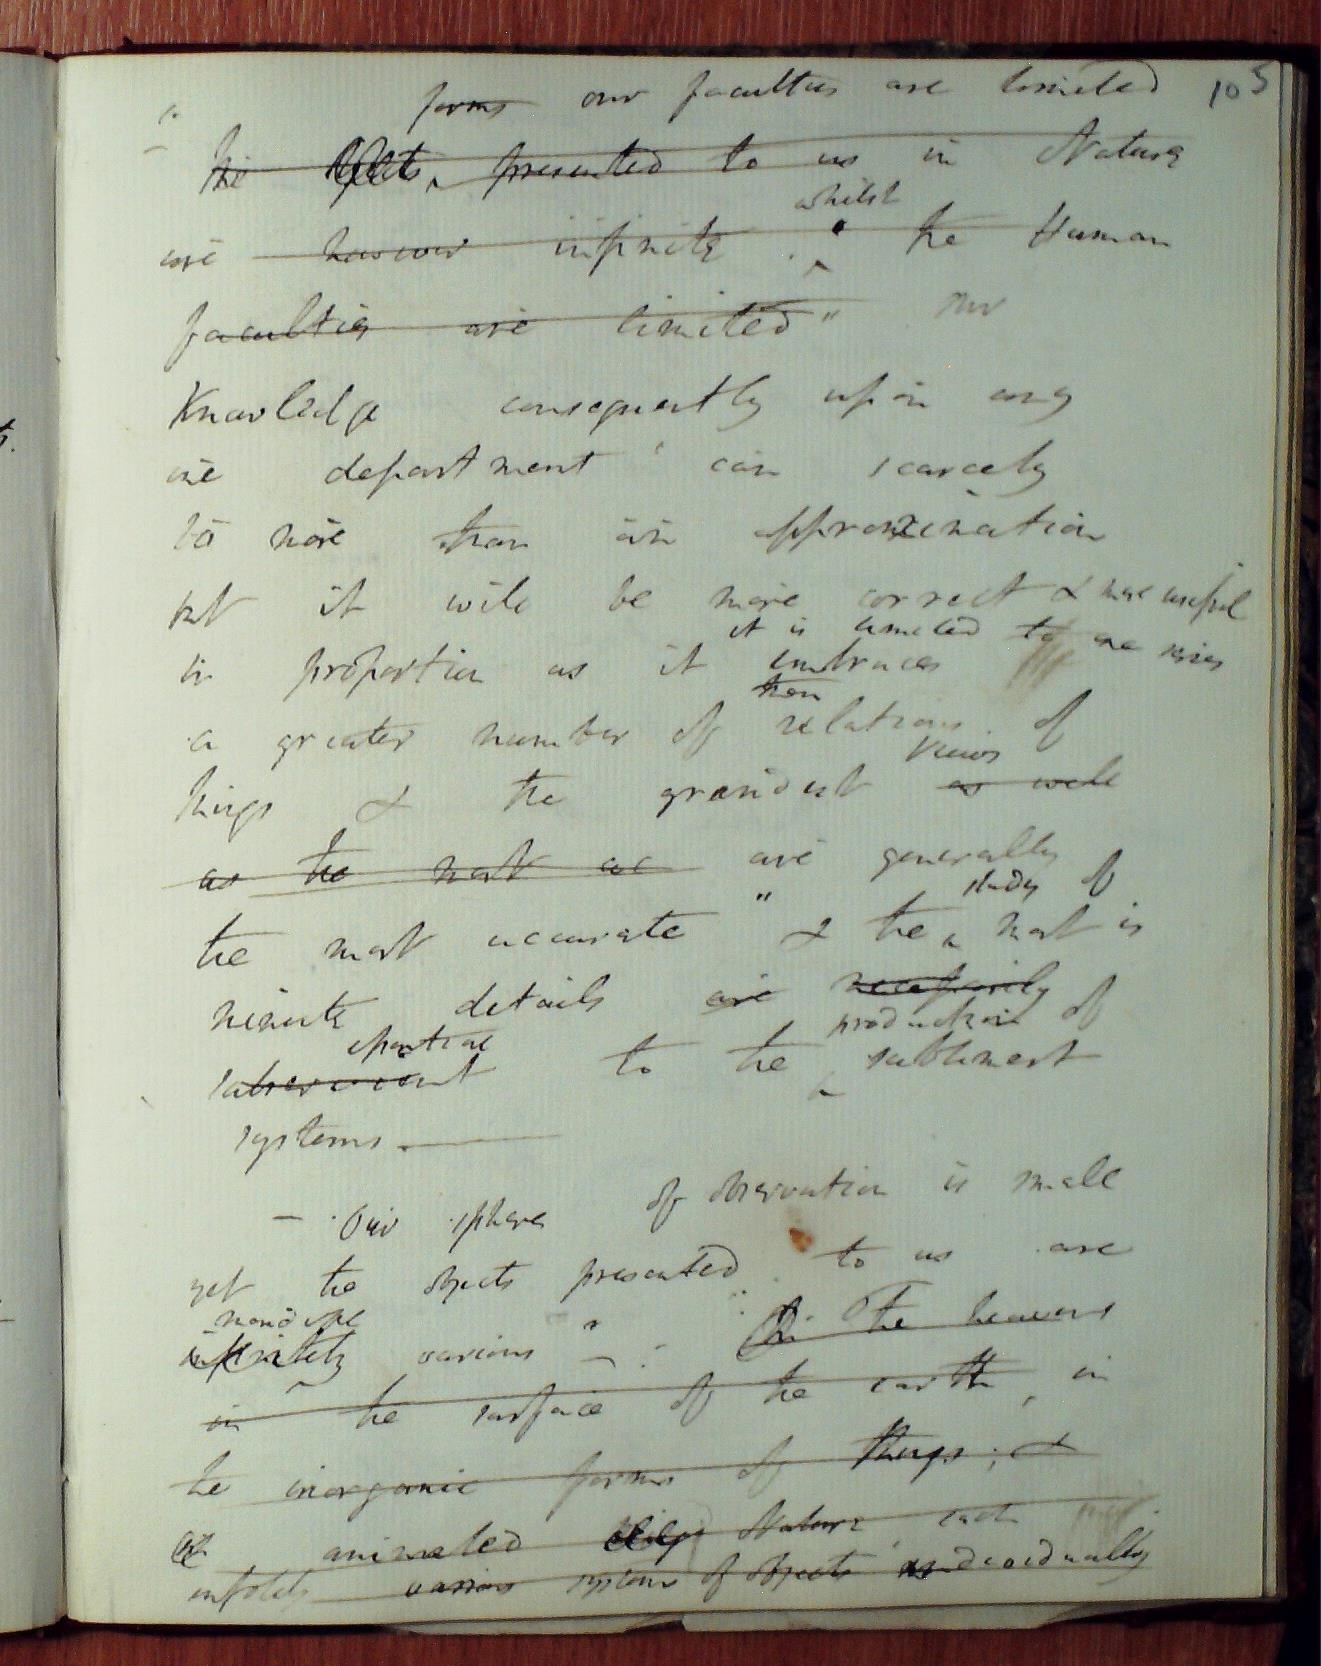 forms our faculties are limited 105
The objects presented to us in Nature
whilst
are however infinite the Human
faculties are limited" our
Knowledge consequently upon any
one department can scarcely
be more than an approximation
but it will be more correct & more useful
it is limited to one series
in proportion as it embraces
than
a greater number of relations of
views
things & the grandest as well
as the most are generally
study of
the most accurate " & the most
minute details are necessarily
production of
essential
subservient to the sublimest
systems. —
— Our sphere of observation is small
yet the objects presented to us are
infinitely various - In The heavens
in the surface of the earth, in
the inorganic forms of things; &
animated beings Nature each
unfolds various systems of objects individually